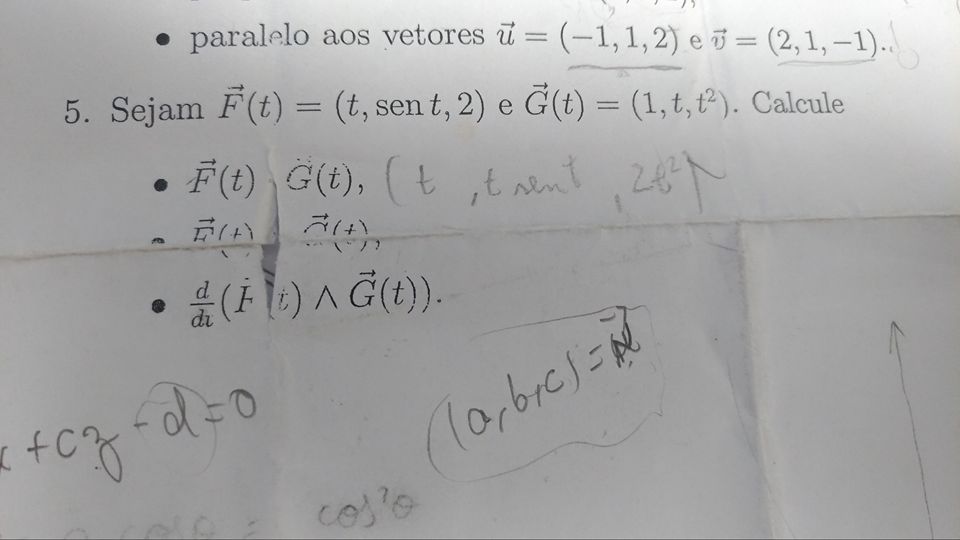 • paralelo aos vetores u⃗ = (−1, 1, 2) e v⃗ = (2, 1, −1).
5. Sejam F⃗(t) = (t, sen t, 2) e G⃗(t) = (1, t, t²). Calcule
• F⃗(t) G⃗(t), (t , t sen t , 2t²)
• F⃗(t) G⃗(t),
• d/dt (F⃗(t) ∧ G⃗(t)).
(a, b, c) = n⃗
+ cz - d = 0
cos²θ